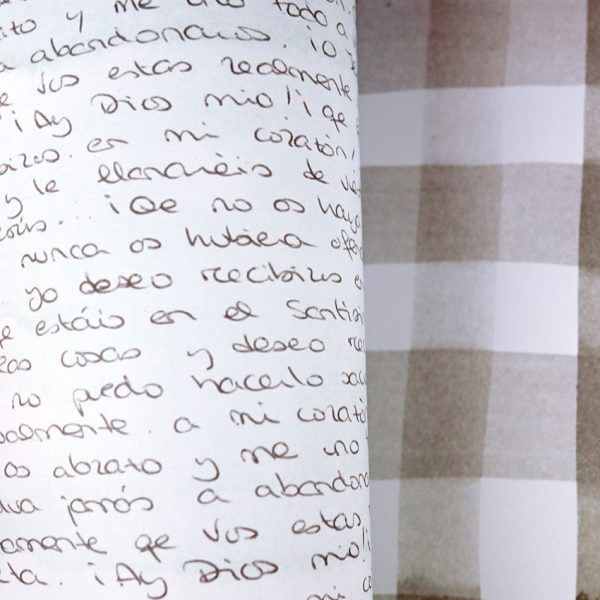 ito y me uno todo a
a abandonaros. ¡O
e vos estás realmente
¡Ay Dios mio! ¡qe
biros. en mi corazón,
y le llenaréis de
¡Qe no os haya
nunca os hubiera ofe
yo deseo recibiros e
qe estáis en el Santísi
eas cosas y deseo re
no puedo hacerlo sac
ualmente. a mi corazó
os abrazo y me uno
jamás a abandona
amente qe vos estas
eta. ¡Ay Dios mio! ¡
mi co